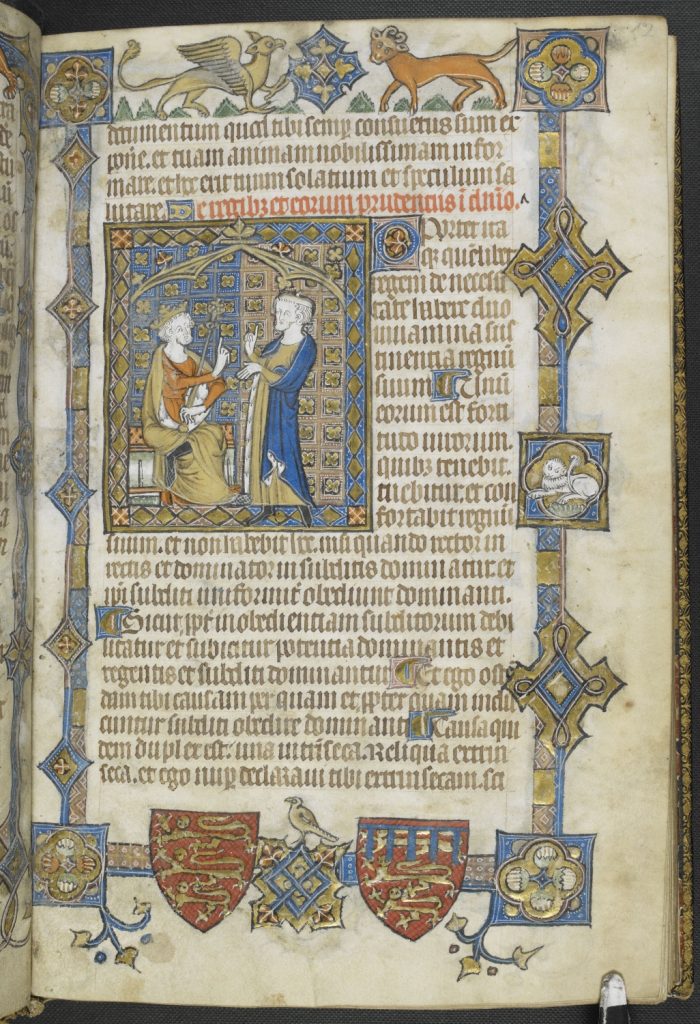 documentum quod tibi semp consuetus sum ex
pone. et tuam animam nobilissimam infor
mare. et hec erit tuum solatium et speculum sa
lutare. De regibz et eorum
Oportet ita
qr quelibet
regem de necessi
tate habere duo
iuuamina sus
tinentia regnū
suum. Unū
eorum est forti
tudo uirorum.
quibz tenebit.
tuebitur. et con
fortabit regnū
suum. et non habebit hec. nisi quando rector in
rectis et dominator in subditis dominatur. et
ipi subditi uniformit obediunt dominanti.
Sicut ppt in obedientiam subditorum debi
litatur et subicitur potentia dominantis et
regentis et subditi dominantur. Et ego osten
dam tibi causam per quam et ppter quam indu
cuntur subditi obedire dominanti. Causa qui
dem duplex est. una intrīseca. Reliqua extrin
seca. et ego nup declaraui tibi extrinsecam. sci